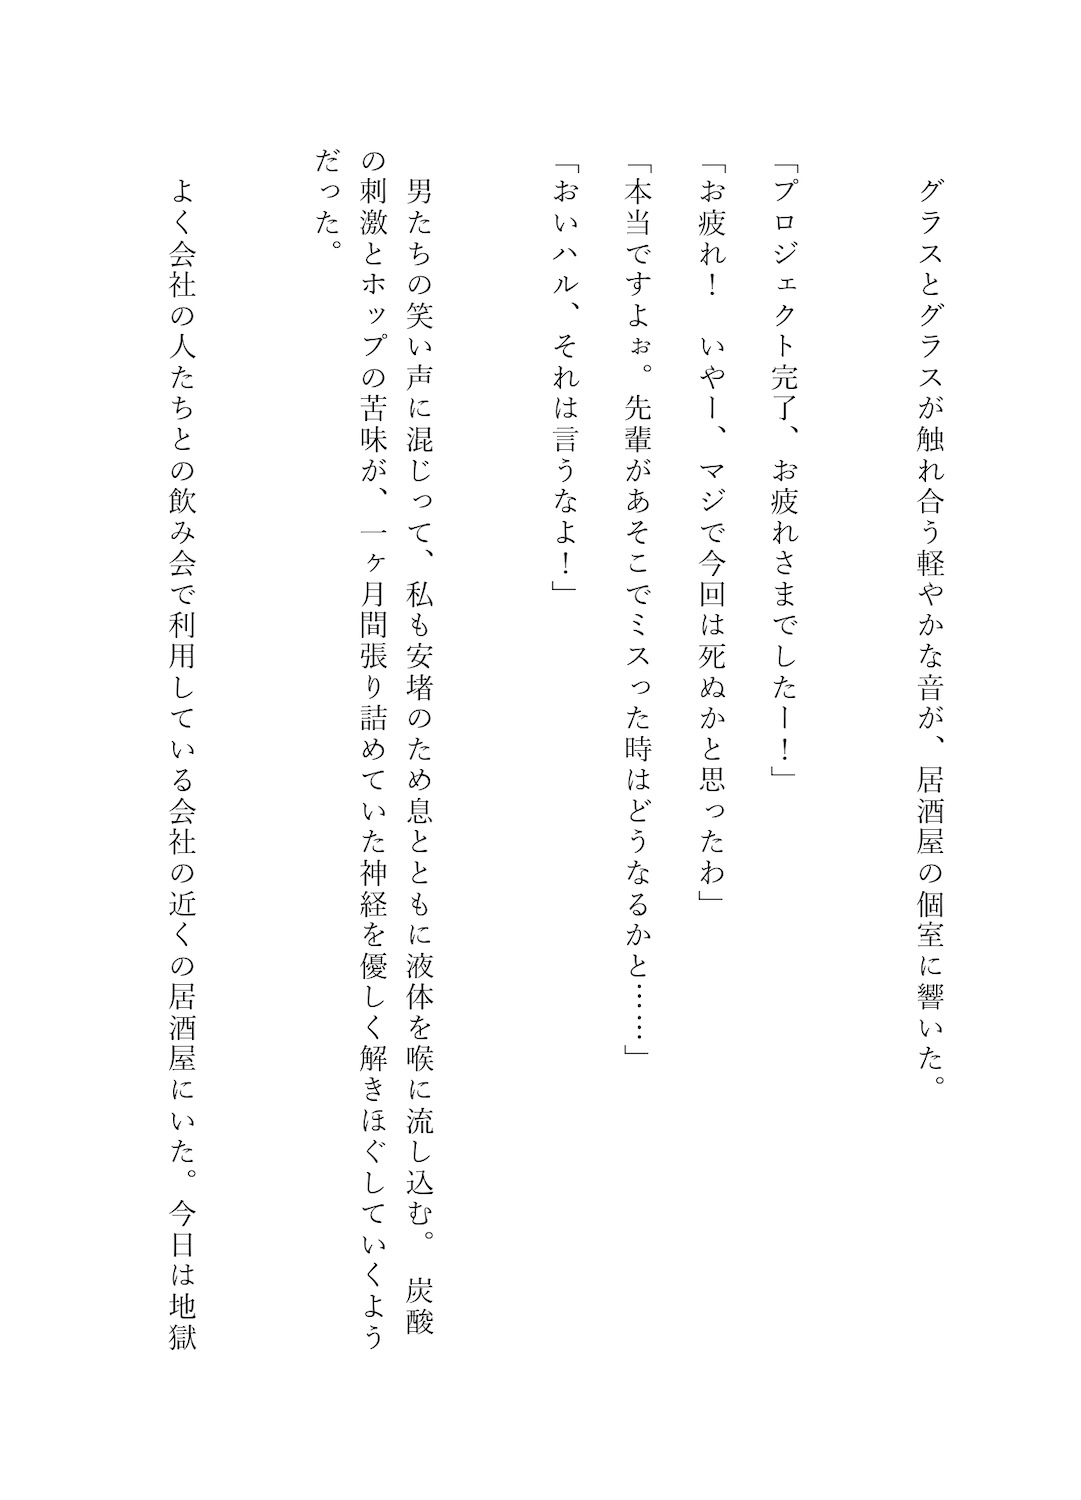 グラスとグラスが触れ合う軽やかな音が、居酒屋の個室に響いた。
「プロジェクト完了、お疲れさまでしたー！」
「お疲れ！　いやー、マジで今回は死ぬかと思ったわ」
「本当ですよぉ。先輩があそこでミスった時はどうなるかと……」
「おいハル、それは言うなよ！」
　男たちの笑い声に混じって、私も安堵のため息とともに液体を喉に流し込む。　炭酸
の刺激とホップの苦味が、一ヶ月間張り詰めていた神経を優しく解きほぐしていくよう
だった。
　よく会社の人たちとの飲み会で利用している会社の近くの居酒屋にいた。今日は地獄